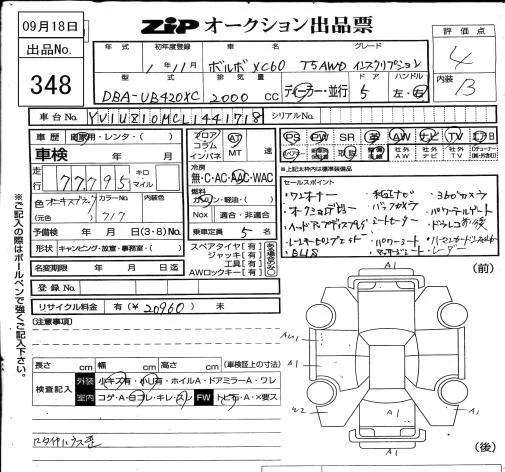 09月18日
ZIP オークション出品票
評価点
4
内装
B
出品No.
348
年式 初年度登録 車名 グレード
1年11月 ボルボ XC60 T5 AWD インスクリプション
型式 排気量 ドア ハンドル
DBA-UB420XC 2000 cc ディーラー・並行 5 左・右
車台No. YV1UZ810MCL1441718 シリアルNo.
車歴 自家用・レンタ・( )
車検 年 月
走行 77795 キロ マイル
色 カラーNo. 内装色
(元色) 717
予備検 年 月 日(3・8)No.
形状 キャンピング・放宣・事務室・( )
名変期限 年 月 日迄
登録No.
リサイクル料金 有(¥ 20960 ) 未
フロア コラム インパネ AT MT 速
冷房 無・C・AC・AAC・WAC
燃料 ガソリン・軽油・( )
Nox 適合・非適合
乗車定員 5 名
スペアタイヤ[有]
ジャッキ[有]
工具[有]
AWロックキー[有]
PS PW SR 革 AW ナビ TV
社外AW 社外ナビ 社外TV
※上記太枠内は標準装備品
セールスポイント
・ワンオーナー ・純正ナビ ・360°カメラ
・バックカメラ ・パワーテールゲート
・ヘッドアップディスプレイ ・シートヒーター
・パワーシート
・BLIS ・マッサージシート ・レーダー
[注意事項]
長さ cm 幅 cm 高さ cm (車検証上の寸法)
検査記入 外装 小キズ有・小U有・ホイルA・ドアミラーA・ワレ
室内 コゲ・A・ヨゴレ・キレ・スレ FW トビ石・A・X要ス
(前)
A1
A1
AU1
A1
U2
A1
A1
A1
(後)
※ご記入の際はボールペンで強くご記入下さい。